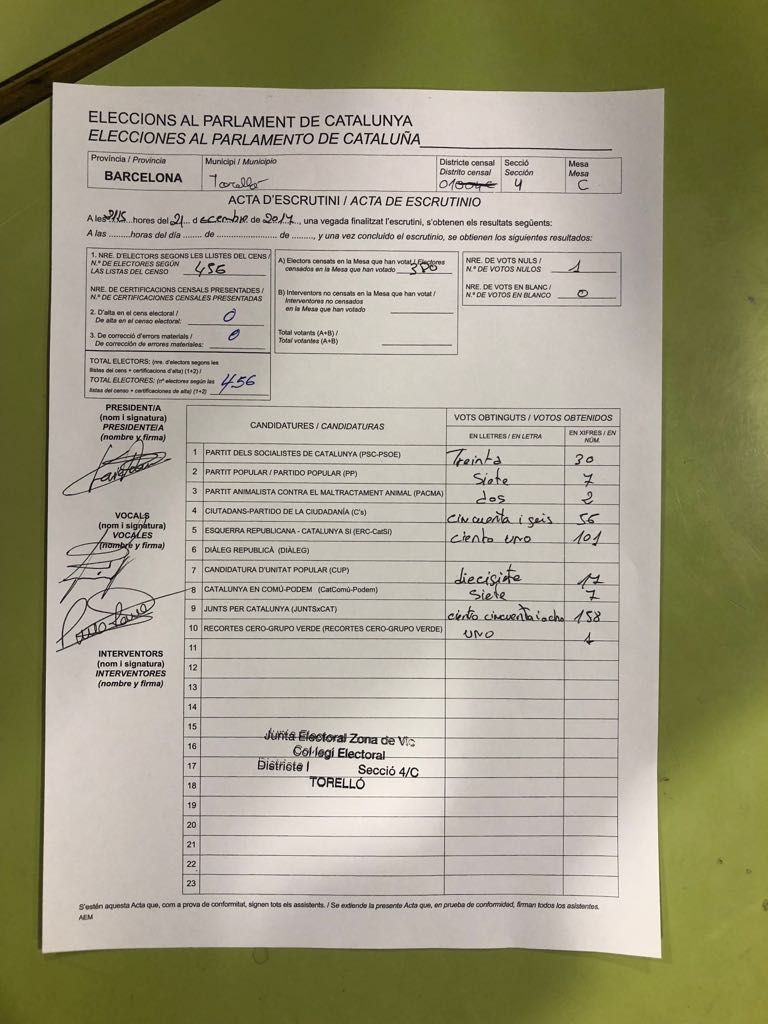 ELECCIONS AL PARLAMENT DE CATALUNYA
ELECCIONES AL PARLAMENTO DE CATALUÑA
Província / Provincia
BARCELONA
Municipi / Municipio
Torelló
Districte censal
Distrito censal
01
Secció
Sección
4
Mesa
Mesa
C
ACTA D'ESCRUTINI / ACTA DE ESCRUTINIO
A les 21'15 hores del 21 d de 2017, una vegada finalitzat l'escrutini, s'obtenen els resultats següents:
A las .........horas del día ....... de ................. de ........., y una vez concluido el escrutinio, se obtienen los siguientes resultados:
1. NRE. D'ELECTORS SEGONS LES LLISTES DEL CENS /
N.º DE ELECTORES SEGÚN
LAS LISTAS DEL CENSO 456
NRE. DE CERTIFICACIONS CENSALS PRESENTADES /
N.º DE CERTIFICACIONES CENSALES PRESENTADAS
2. D'alta en el cens electoral /
De alta en el censo electoral: 0
3. De correcció d'errors materials /
De corrección de errores materiales: 0
TOTAL ELECTORS: (nre. d'electors segons les
llistes del cens + certificacions d'alta) (1+2) /
TOTAL ELECTORES: (nº electores según las
listas del censo + certificaciones de alta) (1+2) 456
A) Electors censats en la Mesa que han votat / Electores
censados en la Mesa que han votado 380
B) Interventors no censats en la Mesa que han votat /
Interventores no censados
en la Mesa que han votado
Total votants (A+B) /
Total votantes (A+B)
NRE. DE VOTS NULS /
N.º DE VOTOS NULOS 1
NRE. DE VOTS EN BLANC /
N.º DE VOTOS EN BLANCO 0
PRESIDENT/A
(nom i signatura)
PRESIDENTE/A
(nombre y firma)
VOCALS
(nom i signatura)
VOCALES
(nombre y firma)
INTERVENTORS
(nom i signatura)
INTERVENTORES
(nombre y firma)
CANDIDATURES / CANDIDATURAS
VOTS OBTINGUTS / VOTOS OBTENIDOS
EN LLETRES / EN LETRA
EN XIFRES / EN NÚM.
1 PARTIT DELS SOCIALISTES DE CATALUNYA (PSC-PSOE) Treinta 30
2 PARTIT POPULAR / PARTIDO POPULAR (PP) Siete 7
3 PARTIT ANIMALISTA CONTRA EL MALTRACTAMENT ANIMAL (PACMA) dos 2
4 CIUTADANS-PARTIDO DE LA CIUDADANÍA (C's) cincuenta i seis 56
5 ESQUERRA REPUBLICANA - CATALUNYA SÍ (ERC-CatSí) ciento uno 101
6 DIÀLEG REPUBLICÀ (DIÀLEG)
7 CANDIDATURA D'UNITAT POPULAR (CUP) diecisiete 17
8 CATALUNYA EN COMÚ-PODEM (CatComú-Podem) Siete 7
9 JUNTS PER CATALUNYA (JUNTSxCAT) ciento cincuenta i ocho 158
10 RECORTES CERO-GRUPO VERDE (RECORTES CERO-GRUPO VERDE) UNO 1
11
12
13
14
15
16
17
18
19
20
21
22
23
Junta Electoral Zona de Vic
Col·legi Electoral
Districte I Secció 4/C
TORELLÓ
S'estén aquesta Acta que, com a prova de conformitat, signen tots els assistents. / Se extiende la presente Acta que, en prueba de conformidad, firman todos los asistentes.
AEM